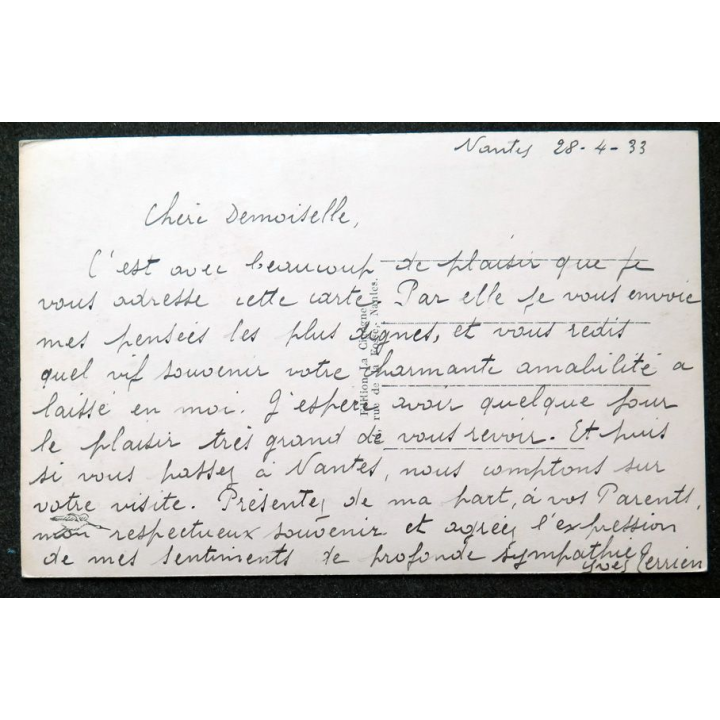 Nantes 28-4-33
Chère Demoiselle,
C'est avec beaucoup de plaisir que je
vous adresse cette carte. Par elle je vous envoie
mes pensées les plus dignes, et vous redis
quel vif souvenir votre charmante amabilité a
laissé en moi. J'espère avoir quelque jour
le plaisir très grand de vous revoir. Et puis
si vous passez à Nantes, nous comptons sur
votre visite. Présentez de ma part, à vos Parents,
mon respectueux souvenir et agréez l'expression
de mes sentiments de profonde sympathie
Yves Terrien
Edition La Cigogne
rue de la Fosse - Nantes.